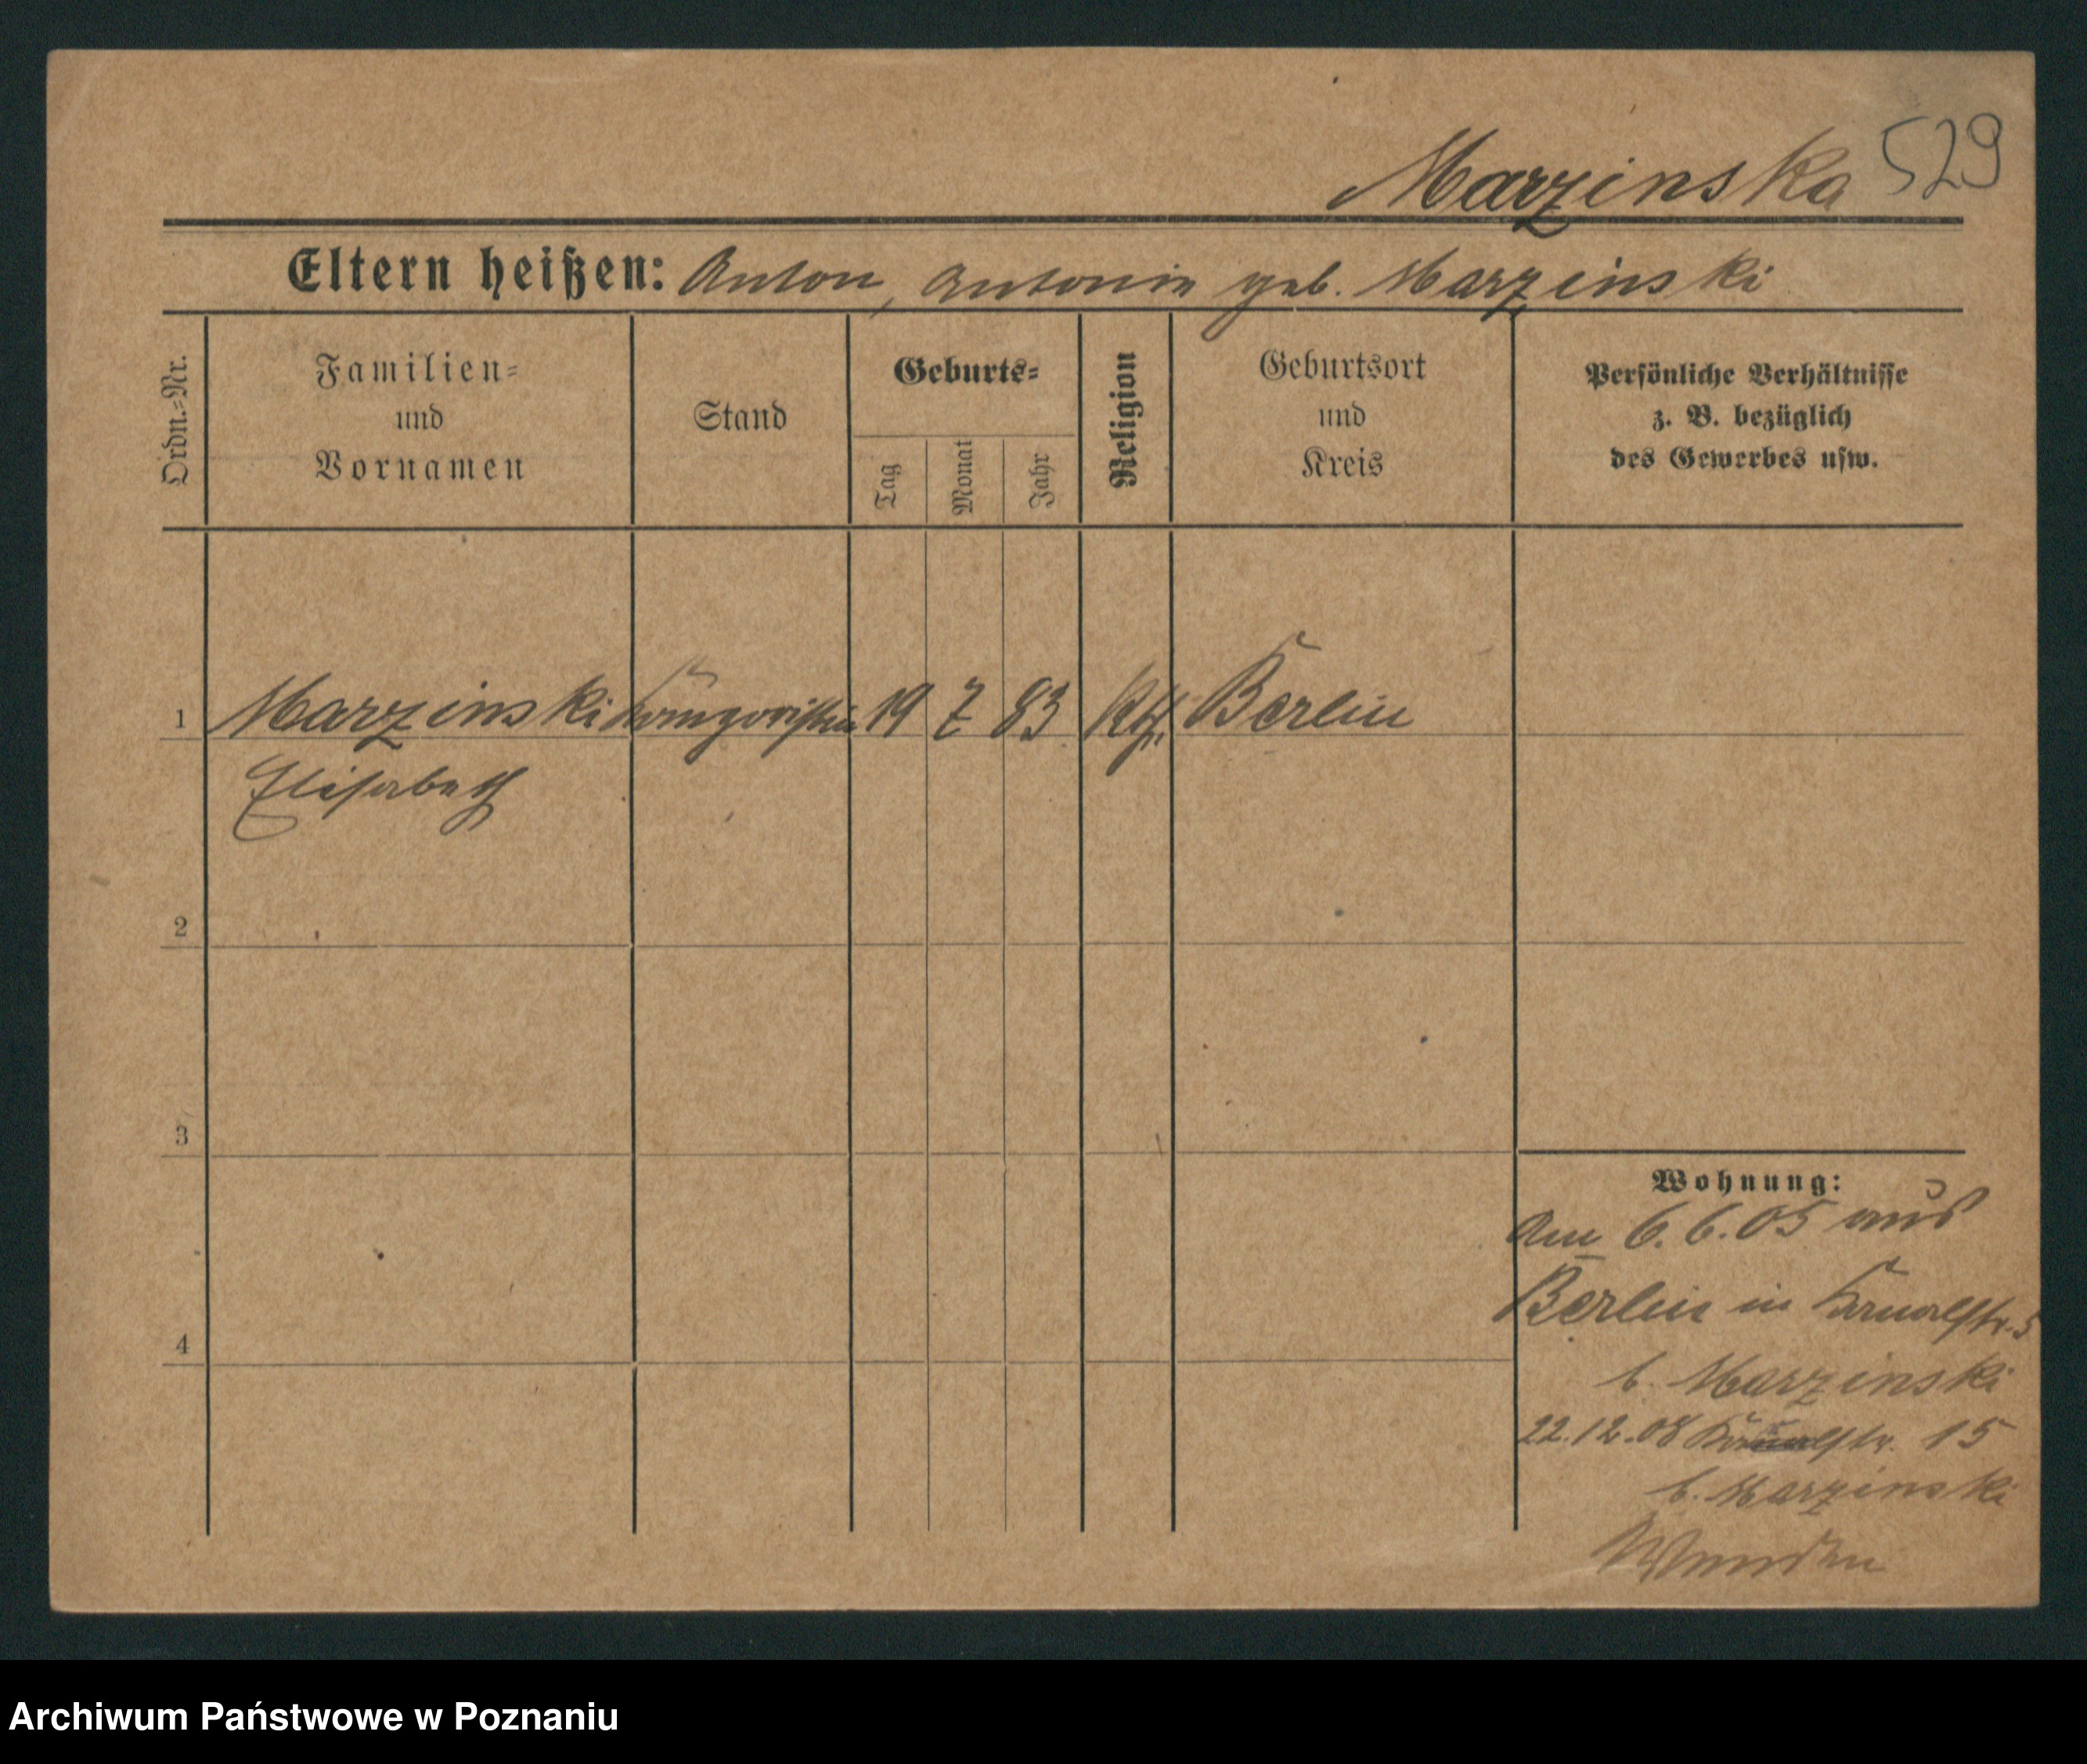 Marzinska 529
Eltern heißen: Anton, Antonie geb. Marzinski
Ordn.=Nr.
Familien=
und
Vornamen
Stand
Geburts=
Tag
Monat
Jahr
Religion
Geburtsort
und
Kreis
Persönliche Verhältnisse
z. B. bezüglich
des Gewerbes usw.
1 Marzinski 19 7 83 Kth. Berlin
Elisabeth
2
3
4
Wohnung:
Am 6.6.05 aus
Berlin in 5
b. Marzinski
22.12.08 15
b. Marzinski
Archiwum Państwowe w Poznaniu